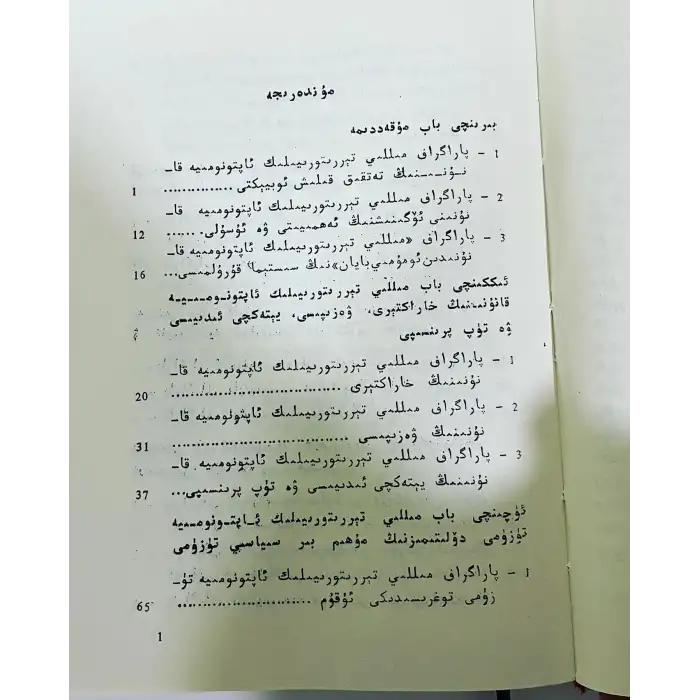 مۇندەرىجە
بىرىنچى باب مۇقەددىمە
1 – پاراگراف مىللىي تېررىتورىيىلىك ئاپتونومىيە قا-
نۇنىنىڭ تەتقىق قىلىش ئوبيېكتى .............. 1
2 – پاراگراف مىللىي تېررىتورىيىلىك ئاپتونومىيە قا-
نۇنىنى ئۆگىنىشنىڭ ئەھمىيىتى ۋە ئۇسۇلى ...... 12
3 – پاراگراف «مىللىي تېررىتورىيىلىك ئاپتونومىيە قا-
نۇنىدىن ئومۇمىي بايان»نىڭ سىستېما قۇرۇلمىسى... 16
ئىككىنچى باب مىللىي تېررىتورىيىلىك ئاپتونومىيە
قانۇنىنىڭ خاراكتېرى، ۋەزىپىسى، يېتەكچى ئىدىيىسى
ۋە تۈپ پرىنسىپى
1 – پاراگراف مىللىي تېررىتورىيىلىك ئاپتونومىيە قا-
نۇنىنىڭ خاراكتېرى .................................. 20
2 – پاراگراف مىللىي تېررىتورىيىلىك ئاپتونومىيە قا-
نۇنىنىڭ ۋەزىپىسى .................................. 31
3 – پاراگراف مىللىي تېررىتورىيىلىك ئاپتونومىيە قا-
نۇنىنىڭ يېتەكچى ئىدىيىسى ۋە تۈپ پرىنسىپى... 37
ئۈچىنچى باب مىللىي تېررىتورىيىلىك ئاپتونومىيە
تۈزۈمى دۆلىتىمىزنىڭ مۇھىم بىر سىياسىي تۈزۈمى
1 – پاراگراف مىللىي تېررىتورىيىلىك ئاپتونومىيە تۈ-
زۈمى توغرىسىدىكى ئۇقۇم ........................... 65
1